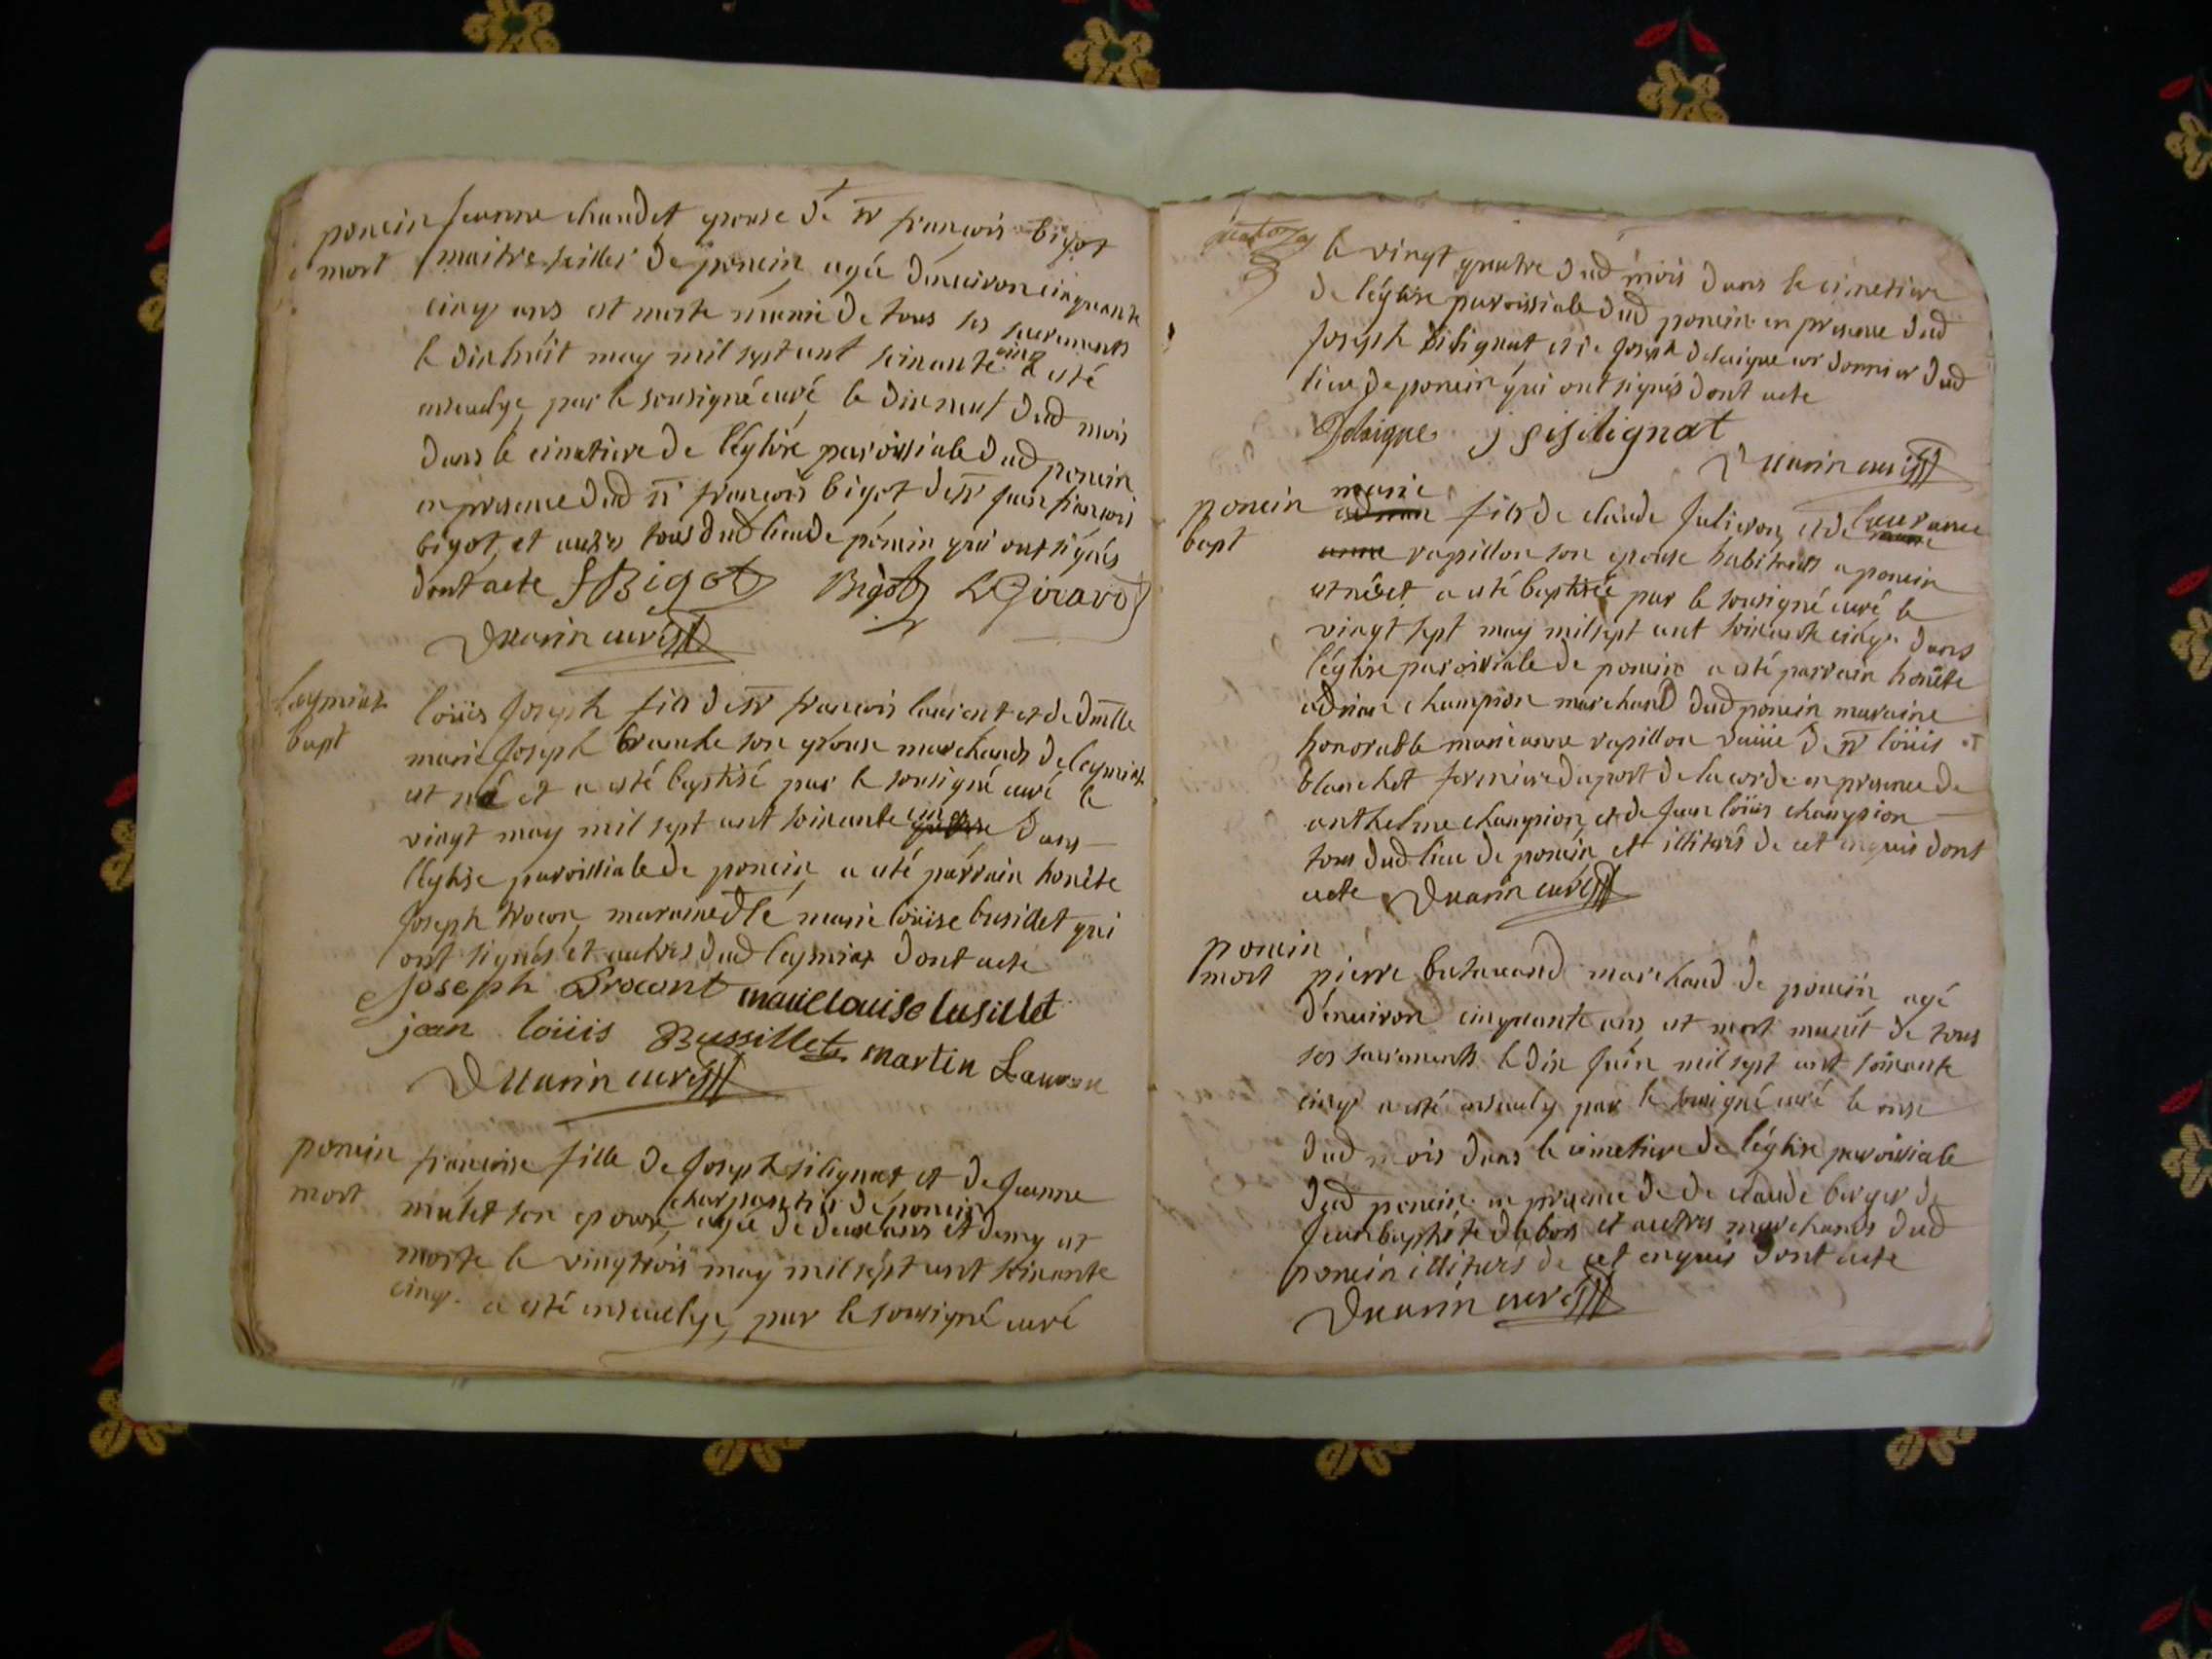 poncin
mort
jeanne chaudet epouse de sr françois bigot
maitre seiller de poncin, agée denviron cinquante
cinq ans est morte munie de tous ses sacrements
le dixhuit may mil sept cent soixante cinq a esté
ensevelye par le sousigné curé le dix neuf dud mois
dans le cimetiere de léglise paroissiale dud poncin
en presence dud sr françois bigot, de sr jean françois
bigot, et autres tous dud lieu de poncin qui ont signés
dont acte FBigot Bigot Girard
curé
leymiat
bapt
loüis joseph fils de sr françois laurent et de dmlle
marie joseph branche son epouse marchands de leymiat
est né et a esté baptisé par le sousigné curé le
vingt may mil sept cent soixante cinq quatre dans
léglise paroissiale de poncin, a esté parrain honéte
joseph trocon, maraine dlle marie loüise busillet qui
ont signés et autres dud leymiat dont acte
joseph Trocont marie louise busillet
jean loüis Bussillet martin Lauran
curé
poncin
mort
françoise fille de joseph silignat, et de jeanne
mulet son epouse, charpentier de poncin
agée de deux ans et demy est
morte le vingtrois may mil sept cent soixante
cinq. a esté ensevelye, par le sousigné curé
le vingt quatre dud mois dans le cimetiere
de léglise paroissiale dud poncin en presence dud
joseph silignat et de joseph delaigue cordonnier dud
lieu de poncin qui ont signés dont acte
Delaigue j sisilignat
curé
poncin
bapt
marie
adrian fils de claude julieron, et de laurance
anne rapillon son epouse habitants a poncin
est née et a esté baptisée par le sousigné curé le
vingt sept may mil sept cent soixante cinq. dans
léglise paroissiale de poncin a esté parrain honéte
adrian champion marchand dud poncin maraine
honorable marieanne rapillon veuve de sr loüis
blanchet fermiere du port de la corde en presence de
anthelme champion, et de jean loüis champion
tous dud lieu de poncin, et illiterés de cet enquis dont
acte curé
poncin
mort
pierre marchand de poncin, agé
denviron cinquante ans, est mort munit de tous
ses sacrements le dix juin mil sept cent soixante
cinq a esté ensevely par le sousigné curé le onze
dud mois dans le cimetiere de léglise paroissiale
dud poncin en presence de de claude berger de
jean baptiste dubois et autres marchands dud
poncin illiterés de cet enquis dont acte
curé